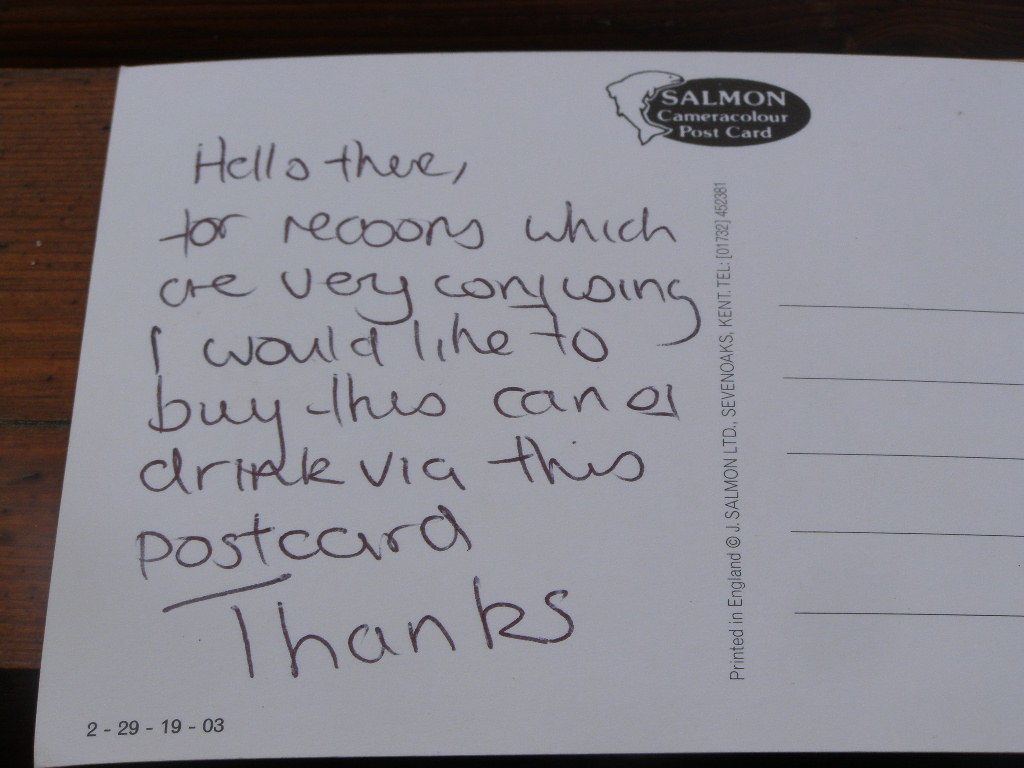 SALMON
Cameracolour
Post Card
Hello there,
for reasons which
are very confusing
I would like to
buy this can of
drink via this
postcard
Thanks
Printed in England © J. SALMON LTD., SEVENOAKS, KENT. TEL: [01732] 452381
2 - 29 - 19 - 03